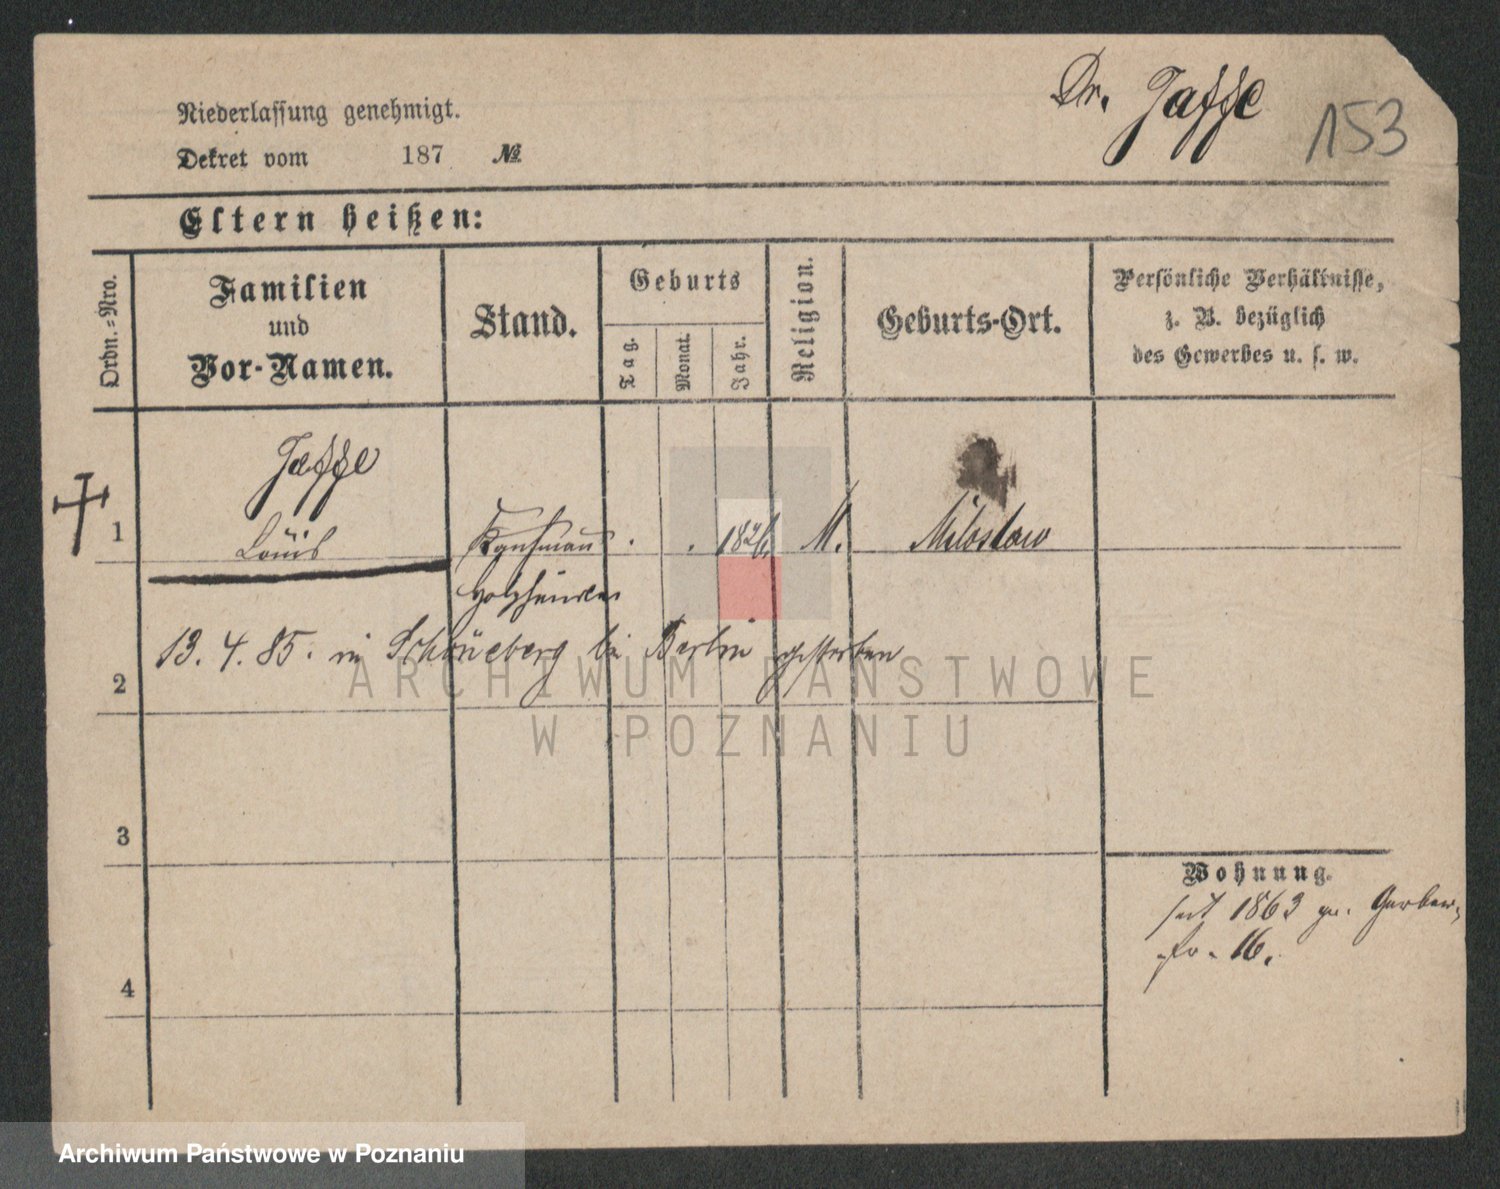 Dr. Jaffe
153
Niederlassung genehmigt.
Dekret vom 187 №
Eltern heißen:
Ordn.-Nro.
Familien
und
Vor-Namen.
Stand.
Geburts
Tag.
Monat.
Jahr.
Religion.
Geburts-Ort.
Persönliche Verhältnisse,
z. B. bezüglich
des Gewerbes u. s. w.
Jaffe
1 Louis Kaufmann 1826. M. Miloslaw
Holzhändler
13. 4. 85. in Schöneberg bei Berlin gestorben
2
ARCHIWUM PAŃSTWOWE
W POZNANIU
3
Wohnung.
seit 1863 gr. Gerber-
str. 16.
4
Archiwum Państwowe w Poznaniu